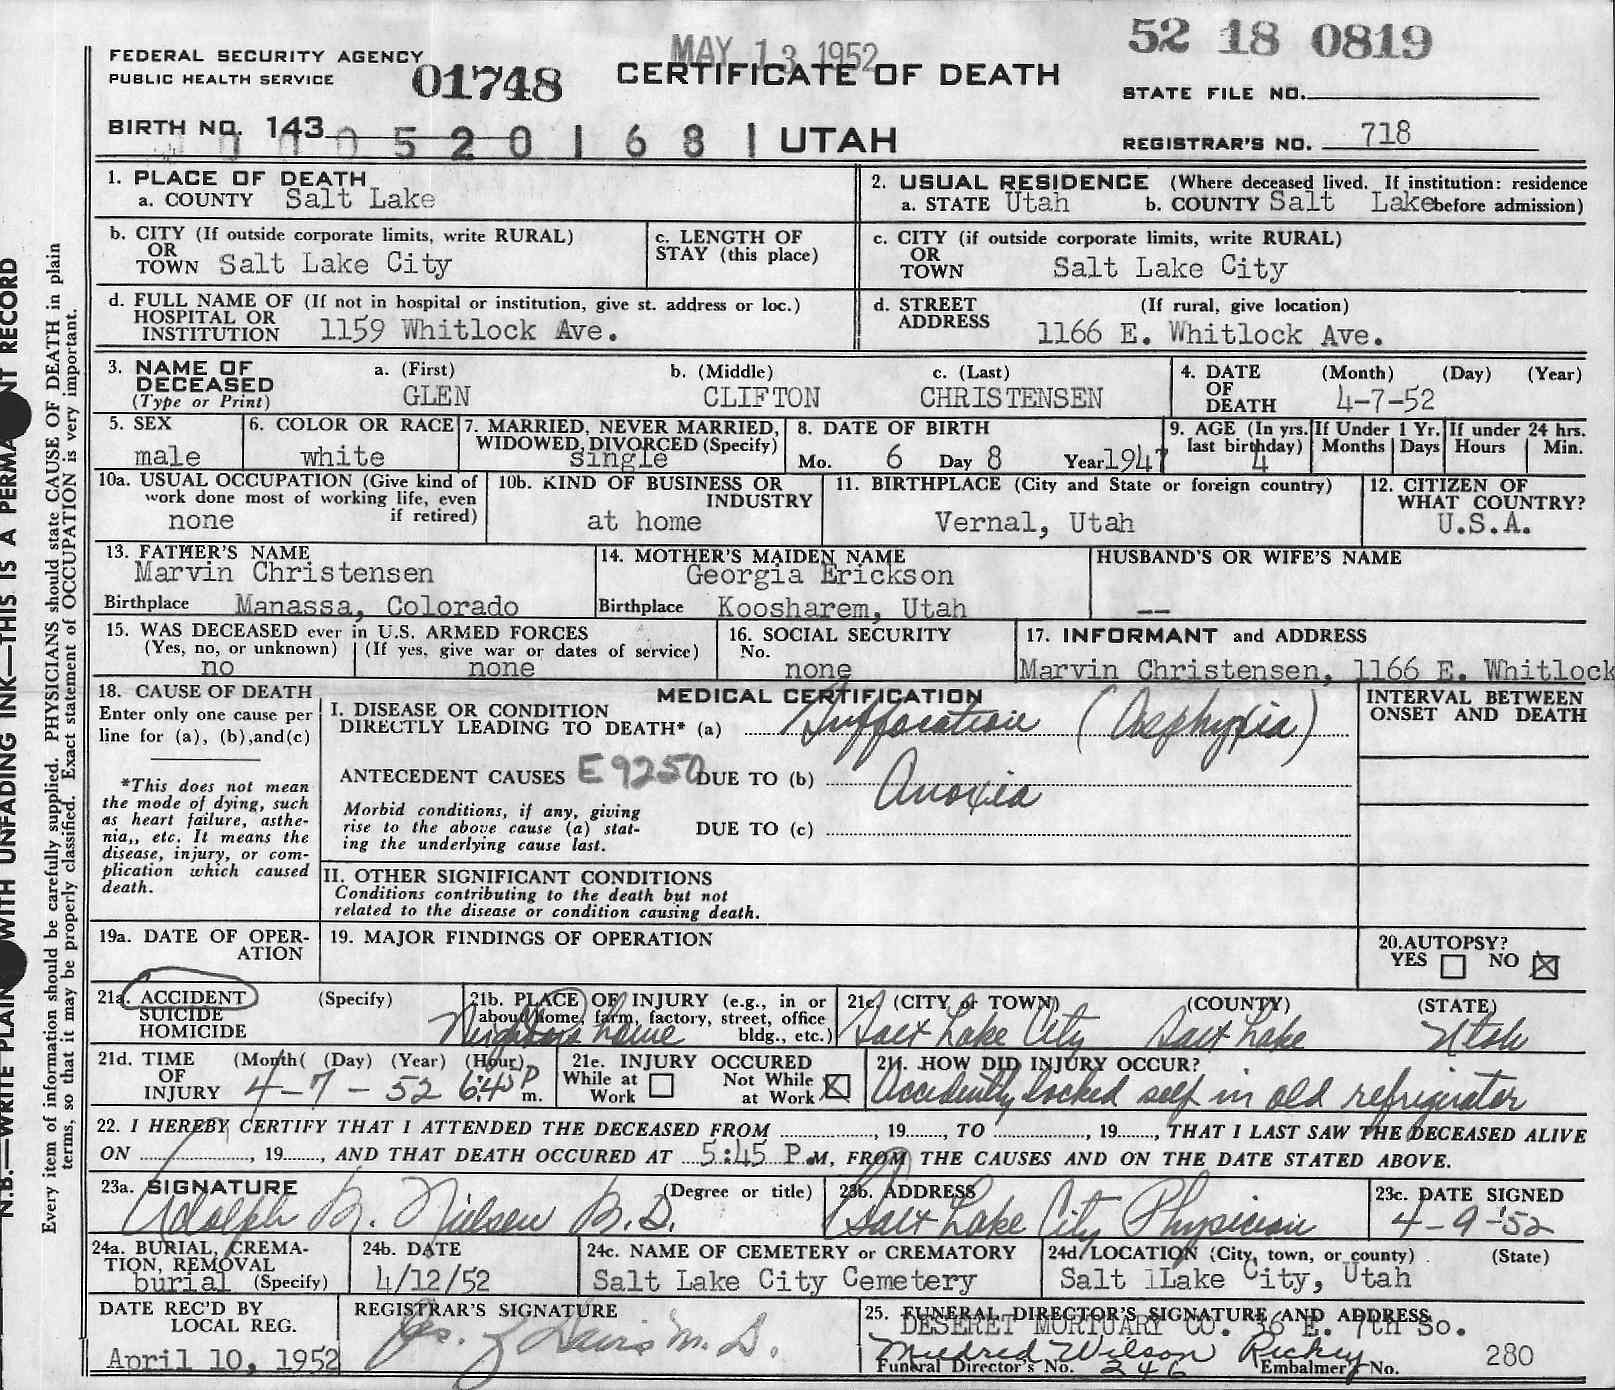 MAY 13 1952
52 18 0819
FEDERAL SECURITY AGENCY
PUBLIC HEALTH SERVICE
01748
CERTIFICATE OF DEATH
STATE FILE NO.
BIRTH NO. 143
0 0 0 5 2 0 1 6 8 1
UTAH
REGISTRAR'S NO. 718
1. PLACE OF DEATH
a. COUNTY Salt Lake
2. USUAL RESIDENCE (Where deceased lived. If institution: residence before admission)
a. STATE Utah b. COUNTY Salt Lake
b. CITY (If outside corporate limits, write RURAL)
OR
TOWN Salt Lake City
c. LENGTH OF
STAY (this place)
c. CITY (if outside corporate limits, write RURAL)
OR
TOWN Salt Lake City
d. FULL NAME OF (If not in hospital or institution, give st. address or loc.)
HOSPITAL OR
INSTITUTION 1159 Whitlock Ave.
d. STREET (If rural, give location)
ADDRESS 1166 E. Whitlock Ave.
3. NAME OF
DECEASED
(Type or Print)
a. (First) b. (Middle) c. (Last)
GLEN CLIFTON CHRISTENSEN
4. DATE (Month) (Day) (Year)
OF
DEATH 4-7-52
5. SEX
male
6. COLOR OR RACE
white
7. MARRIED, NEVER MARRIED,
WIDOWED, DIVORCED (Specify)
single
8. DATE OF BIRTH
Mo. 6 Day 8 Year 1947
9. AGE (In yrs.
last birthday)
4
If Under 1 Yr.
Months Days
If under 24 hrs.
Hours Min.
10a. USUAL OCCUPATION (Give kind of
work done most of working life, even
if retired)
none
10b. KIND OF BUSINESS OR
INDUSTRY
at home
11. BIRTHPLACE (City and State or foreign country)
Vernal, Utah
12. CITIZEN OF
WHAT COUNTRY?
U.S.A.
13. FATHER'S NAME
Marvin Christensen
Birthplace Manassa, Colorado
14. MOTHER'S MAIDEN NAME
Georgia Erickson
Birthplace Koosharem, Utah
HUSBAND'S OR WIFE'S NAME
--
15. WAS DECEASED ever in U.S. ARMED FORCES
(Yes, no, or unknown) (If yes, give war or dates of service)
no none
16. SOCIAL SECURITY
No.
none
17. INFORMANT and ADDRESS
Marvin Christensen, 1166 E. Whitlock
18. CAUSE OF DEATH
Enter only one cause per
line for (a), (b),and(c)
*This does not mean
the mode of dying, such
as heart failure, asthe-
nia,, etc. It means the
disease, injury, or com-
plication which caused
death.
MEDICAL CERTIFICATION
I. DISEASE OR CONDITION
DIRECTLY LEADING TO DEATH* (a) Suffocation (Asphyxia)
ANTECEDENT CAUSES E9250 DUE TO (b) Anoxia
Morbid conditions, if any, giving
rise to the above cause (a) stat-
ing the underlying cause last.
DUE TO (c)
II. OTHER SIGNIFICANT CONDITIONS
Conditions contributing to the death but not
related to the disease or condition causing death.
INTERVAL BETWEEN
ONSET AND DEATH
19a. DATE OF OPER-
ATION
19. MAJOR FINDINGS OF OPERATION
20.AUTOPSY?
YES NO
21a. ACCIDENT (Specify)
SUICIDE
HOMICIDE
21b. PLACE OF INJURY (e.g., in or
about home, farm, factory, street, office
bldg., etc.)
Neighbors home
21c. (CITY or TOWN) (COUNTY) (STATE)
Salt Lake City Salt Lake Utah
21d. TIME (Month( (Day) (Year) (Hour)
OF
INJURY 4-7-52 6:45 P m.
21e. INJURY OCCURED
While at
Work
Not While
at Work
21f. HOW DID INJURY OCCUR?
Accidently locked self in old refrigirator
22. I HEREBY CERTIFY THAT I ATTENDED THE DECEASED FROM , 19 , TO , 19 , THAT I LAST SAW THE DECEASED ALIVE
ON , 19 , AND THAT DEATH OCCURED AT 5:45 P.M, FROM THE CAUSES AND ON THE DATE STATED ABOVE.
23a. SIGNATURE (Degree or title)
Adolph M. Nielsen M.D.
23b. ADDRESS
Salt Lake City Physician
23c. DATE SIGNED
4-9-'52
24a. BURIAL, CREMA-
TION, REMOVAL
burial (Specify)
24b. DATE
4/12/52
24c. NAME OF CEMETERY or CREMATORY
Salt Lake City Cemetery
24d LOCATION (City, town, or county) (State)
Salt lLake City, Utah
DATE REC'D BY
LOCAL REG.
April 10, 1952
REGISTRAR'S SIGNATURE
Davis M.D.
25. FUNERAL DIRECTOR'S SIGNATURE AND ADDRESS
DESERET MORTUARY CO. 36 E. 7th So.
Mildred Wilson Rickey
Funeral Director's No. 246 Embalmer's No. 280
N.B.—WRITE PLAIN WITH UNFADING INK—THIS IS A PERMA NT RECORD
Every item of information should be carefully supplied. PHYSICIANS should state CAUSE OF DEATH in plain
terms, so that it may be properly classified. Exact statement of OCCUPATION is very important.